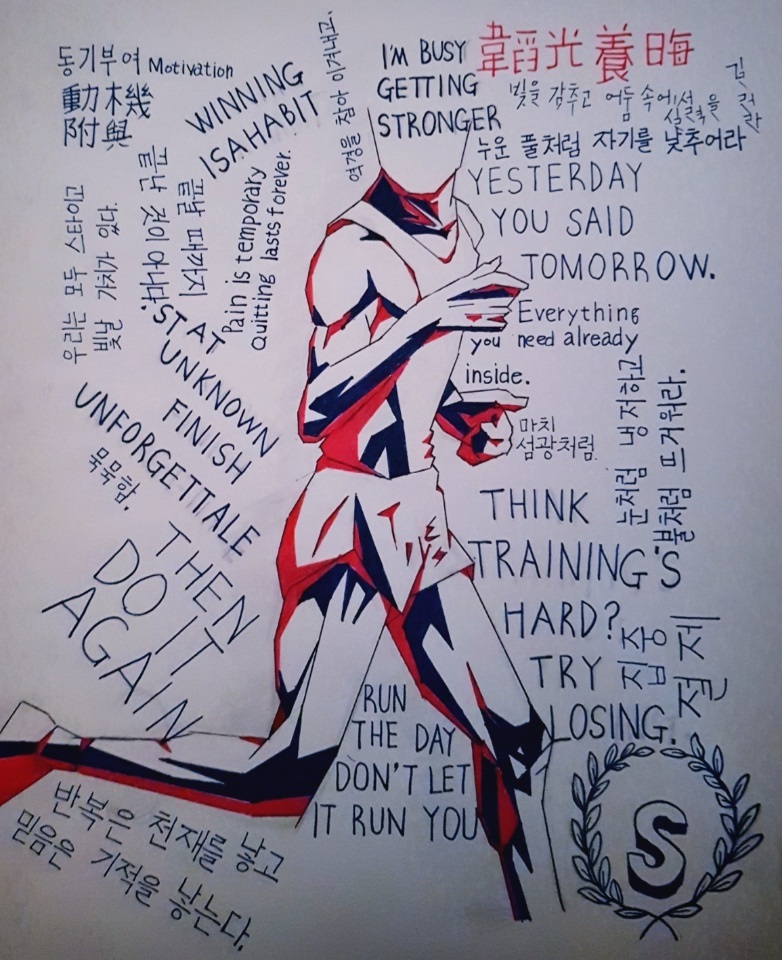 동기부여 Motivation
動機
附與
WINNING
ISAHABIT
역경을 참아 이겨내고.
I'M BUSY
GETTING
STRONGER
韜光養晦
빛을 감추고 어둠 속에서 실력을 길러라
누운 풀처럼 자기를 낮추어라
YESTERDAY
YOU SAID
TOMORROW.
우리는 모두 스타이고
빛날 가치가 있다.
끝날 때까지
끝난 것이 아니다.
Pain is temporary
Quitting lasts forever.
Everything
you need already
inside.
ST AT
UNKNOWN
FINISH
UNFORGETTALE
묵묵함.
마치
섬광처럼.
눈처럼 냉정하고
불처럼 뜨거워라.
THEN
DO IT
AGAIN
THINK
TRAINING'S
HARD?
TRY
LOSING.
집중
절제
RUN
THE DAY
DON'T LET
IT RUN YOU
반복은 천재를 낳고
믿음은 기적을 낳는다.
S